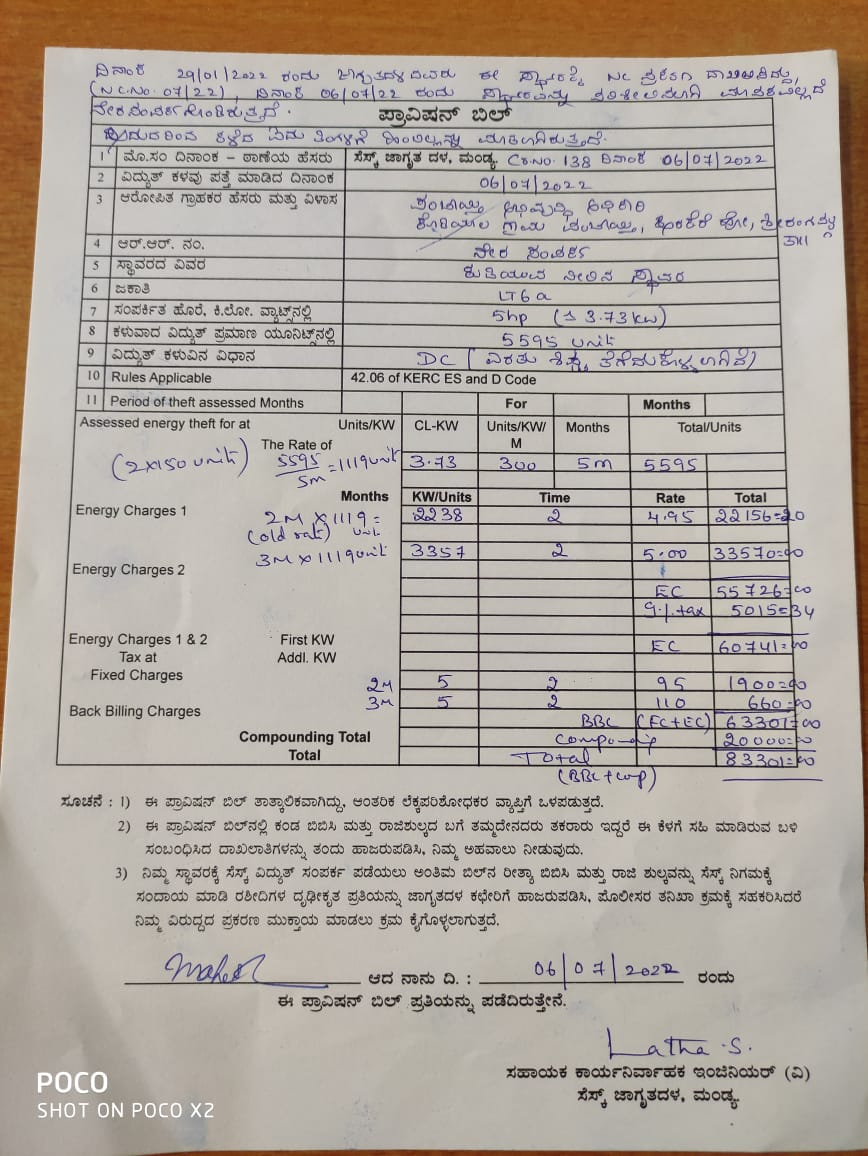 ದಿನಾಂಕ 29/01/2022 ರಂದು ಜಾಗೃತದಳದವರು ಈ ಸ್ಥಾವರಕ್ಕೆ NC ಪ್ರಕರಣ ದಾಖಲಿಸಿದ್ದು,
(NC.No. 07/22), ದಿನಾಂಕ 06/07/22 ರಂದು ಸ್ಥಾವರವನ್ನು ಪರಿಶೀಲಿಸಲಾಗಿ ಮಾಪಕವಿಲ್ಲದೆ
ನೇರಸಂಪರ್ಕ ಹೊಂದಿರುತ್ತದೆ.
ಪ್ರಾವಿಷನ್ ಬಿಲ್
ಕಳೆದ ಐದು ತಿಂಗಳಿಗೆ ಮಾಡಲಾಗಿರುತ್ತದೆ.
1 ಮೊ.ಸಂ ದಿನಾಂಕ - ಠಾಣೆಯ ಹೆಸರು ಸೆಸ್ಕ್ ಜಾಗೃತ ದಳ, ಮಂಡ್ಯ. Cr.No. 138 ದಿನಾಂಕ 06/07/2022
2 ವಿದ್ಯುತ್ ಕಳವು ಪತ್ತೆ ಮಾಡಿದ ದಿನಾಂಕ 06/07/2022
3 ಆರೋಪಿತ ಗ್ರಾಹಕರ ಹೆಸರು ಮತ್ತು ವಿಳಾಸ ಪಂಚಾಯ್ತಿ ಅಭಿವೃದ್ಧಿ ಅಧಿಕಾರಿ
ಗ್ರಾಮ ಪಂಚಾಯ್ತಿ, ಹೋ, ಶ್ರೀರಂಗಪಟ್ಟಣ
ತಾ||
4 ಆರ್.ಆರ್. ನಂ. ನೇರ ಸಂಪರ್ಕ
5 ಸ್ಥಾವರದ ವಿವರ ಕುಡಿಯುವ ನೀರಿನ ಸ್ಥಾವರ
6 ಜಕಾತಿ LT6a
7 ಸಂಪರ್ಕಿತ ಹೊರೆ, ಕಿ.ಲೋ. ವ್ಯಾಟ್ಸ್‌ನಲ್ಲಿ 5hp ( 3.73 kw)
8 ಕಳುವಾದ ವಿದ್ಯುತ್ ಪ್ರಮಾಣ ಯೂನಿಟ್ಸ್‌ನಲ್ಲಿ 5595 unit
9 ವಿದ್ಯುತ್ ಕಳುವಿನ ವಿಧಾನ DC ( ತೆಗೆದುಕೊಳ್ಳಲಾಗಿದೆ)
10 Rules Applicable 42.06 of KERC ES and D Code
11 Period of theft assessed Months For Months
Assessed energy theft for at Units/KW CL-KW Units/KW/M Months Total/Units
The Rate of
(2x150 unit) 5595/5m = 1119 unit 3.73 300 5m 5595
Months KW/Units Time Rate Total
Energy Charges 1 2M x 1119 = 2238 2 4.95 22156=20
(old rate) unit
3M x 1119 unit 3357 2 5.00 33570=00
Energy Charges 2
EC 55726=00
9.1.tax 5015=34
Energy Charges 1 & 2 First KW EC 60741=00
Tax at Addl. KW
Fixed Charges
2M 5 2 95 1900=00
3M 5 2 110 660=00
Back Billing Charges BBC (FC+EC) 63301=00
Compounding Total 20000=00
Total Total 83301=00
(BBC+comp)
ಸೂಚನೆ : 1) ಈ ಪ್ರಾವಿಷನ್ ಬಿಲ್ ತಾತ್ಕಾಲಿಕವಾಗಿದ್ದು, ಆಂತರಿಕ ಲೆಕ್ಕಪರಿಶೋಧಕರ ವ್ಯಾಪ್ತಿಗೆ ಒಳಪಡುತ್ತದೆ.
2) ಈ ಪ್ರಾವಿಷನ್ ಬಿಲ್‌ನಲ್ಲಿ ಕಂಡ ಬಿಬಿಸಿ ಮತ್ತು ರಾಜಿಶುಲ್ಕದ ಬಗೆ ತಮ್ಮದೇನದರು ತಕರಾರು ಇದ್ದರೆ ಈ ಕೆಳಗೆ ಸಹಿ ಮಾಡಿರುವ ಬಳಿ
ಸಂಬಂಧಿಸಿದ ದಾಖಲಾತಿಗಳನ್ನು ತಂದು ಹಾಜರುಪಡಿಸಿ, ನಿಮ್ಮ ಅಹವಾಲು ನೀಡುವುದು.
3) ನಿಮ್ಮ ಸ್ಥಾವರಕ್ಕೆ ಸೆಸ್ಕ್ ವಿದ್ಯುತ್ ಸಂಪರ್ಕ ಪಡೆಯಲು ಅಂತಿಮ ಬಿಲ್‌ನ ರೀತ್ಯಾ ಬಿಬಿಸಿ ಮತ್ತು ರಾಜಿ ಶುಲ್ಕವನ್ನು ಸೆಸ್ಕ್ ನಿಗಮಕ್ಕೆ
ಸಂದಾಯ ಮಾಡಿ ರಶೀದಿಗಳ ದೃಢೀಕೃತ ಪ್ರತಿಯನ್ನು ಜಾಗೃತದಳ ಕಛೇರಿಗೆ ಹಾಜರುಪಡಿಸಿ, ಪೊಲೀಸರ ತನಿಖಾ ಕ್ರಮಕ್ಕೆ ಸಹಕರಿಸಿದರೆ
ನಿಮ್ಮ ವಿರುದ್ದದ ಪ್ರಕರಣ ಮುಕ್ತಾಯ ಮಾಡಲು ಕ್ರಮ ಕೈಗೊಳ್ಳಲಾಗುತ್ತದೆ.
ಆದ ನಾನು ದಿ. : 06/07/2022 ರಂದು
ಈ ಪ್ರಾವಿಷನ್ ಬಿಲ್ ಪ್ರತಿಯನ್ನು ಪಡೆದಿರುತ್ತೇನೆ.
Latha.S.
ಸಹಾಯಕ ಕಾರ್ಯನಿರ್ವಾಹಕ ಇಂಜಿನಿಯರ್ (ವಿ)
ಸೆಸ್ಕ್ ಜಾಗೃತದಳ, ಮಂಡ್ಯ.
POCO
SHOT ON POCO X2